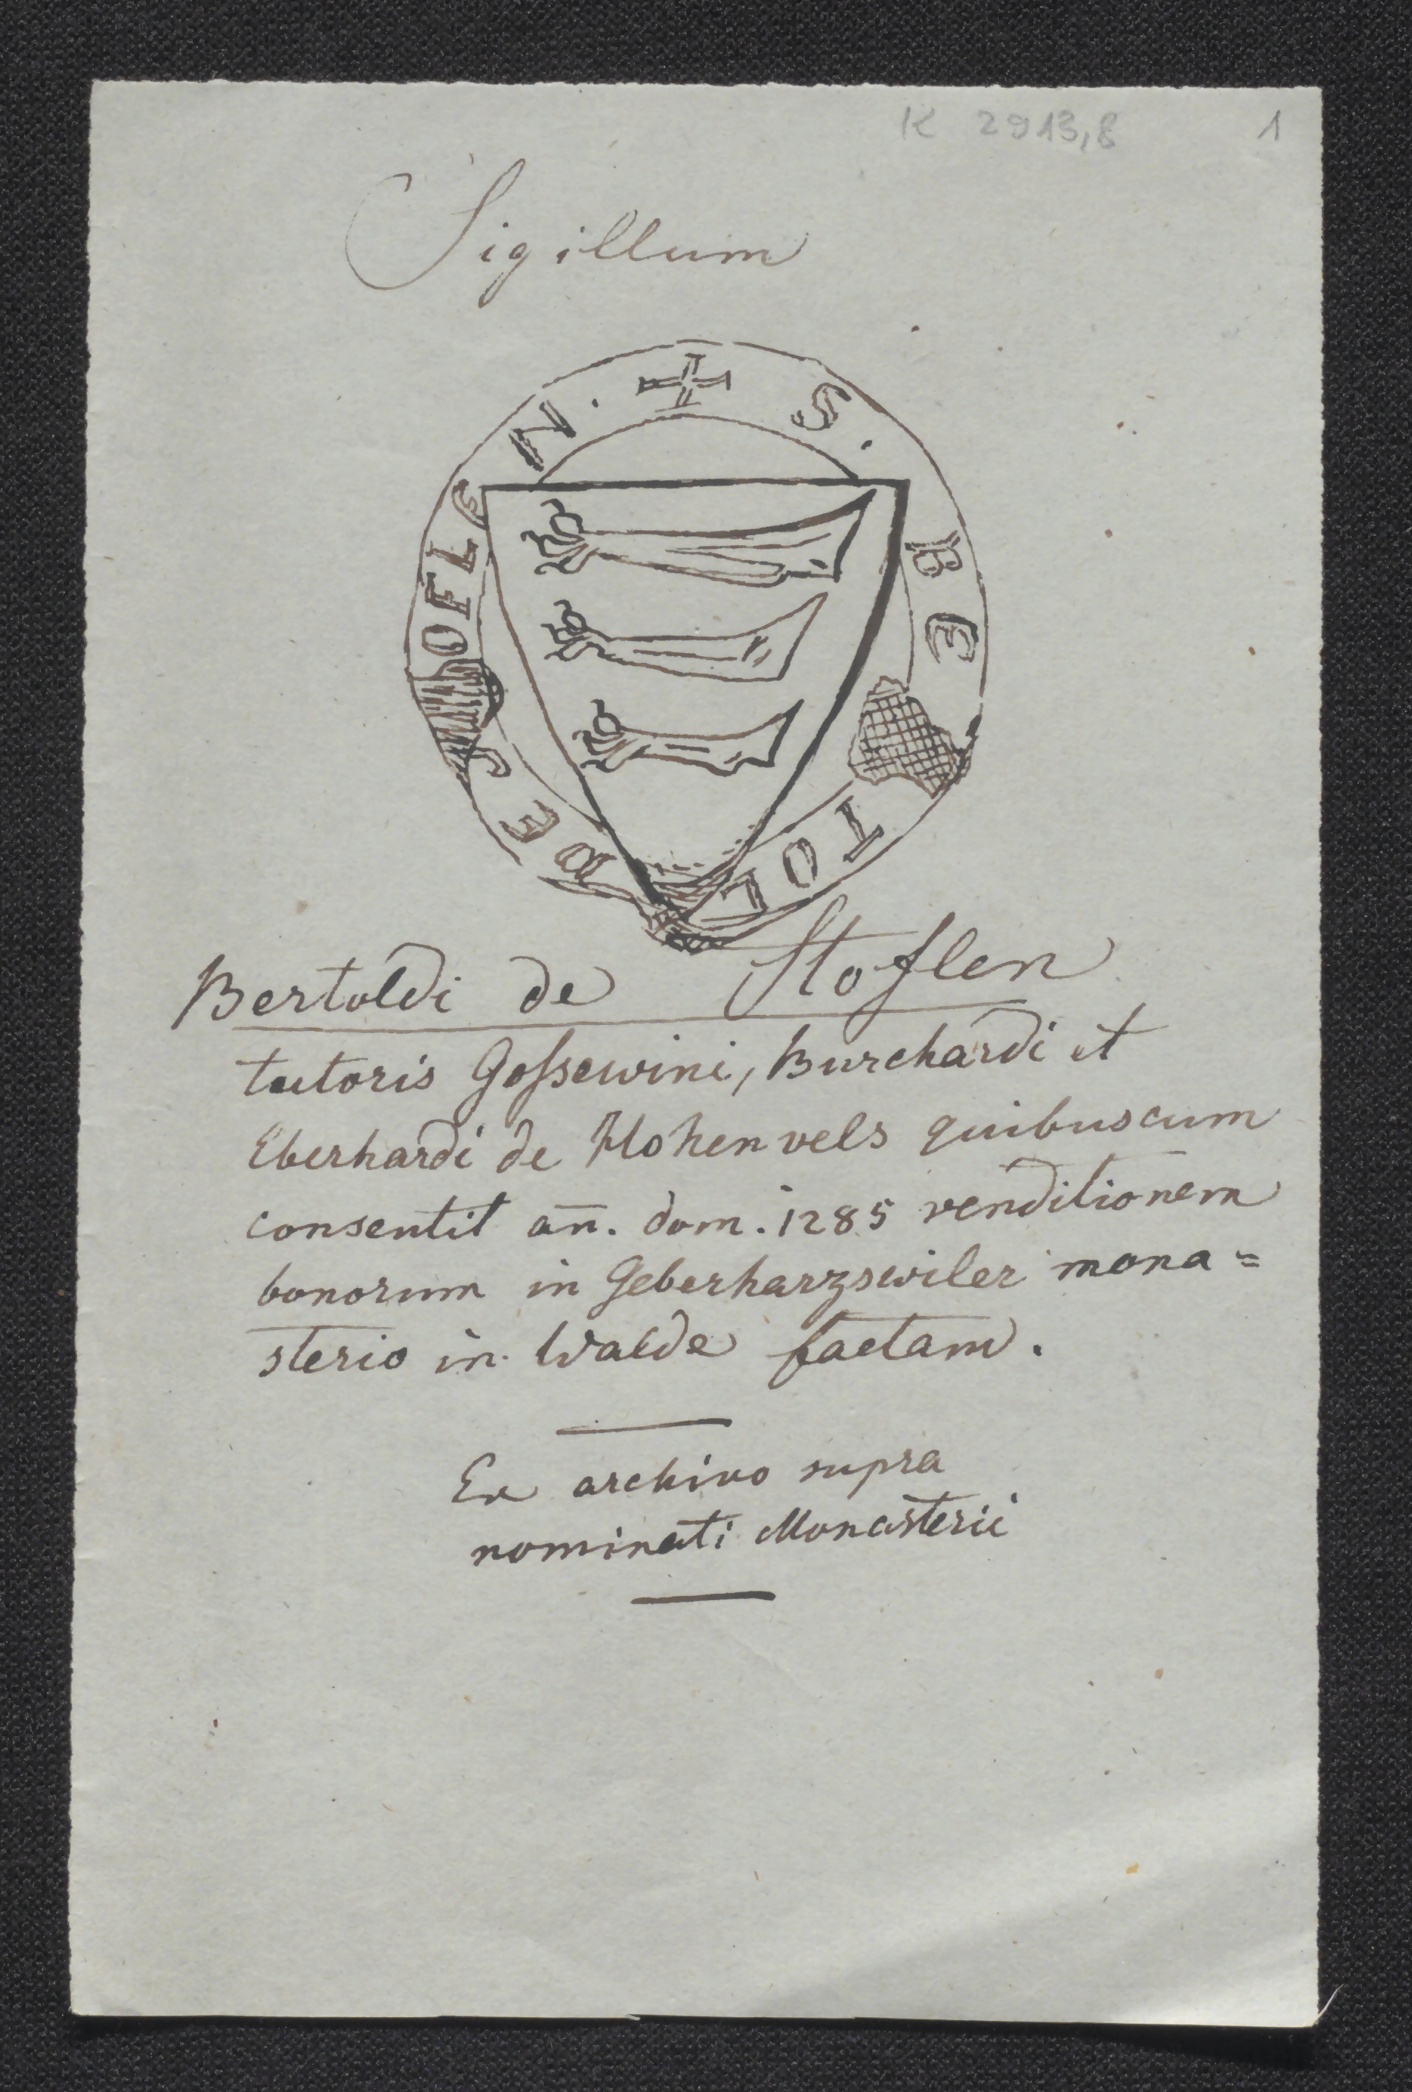 K 2913,8 1
Sigillum
+ S. BE TOL DE S OFLEN.
Bertoldi de Stoflen
tutoris Gosſewini, Burchardi et
Eberhardi de Hohenvels quibuscum
consentit an̅. dom. 1285 venditionem
bonorum in Geberharzswiler mona=
sterio in Walde factam.
Ex archivo supra
nominati Monasterii